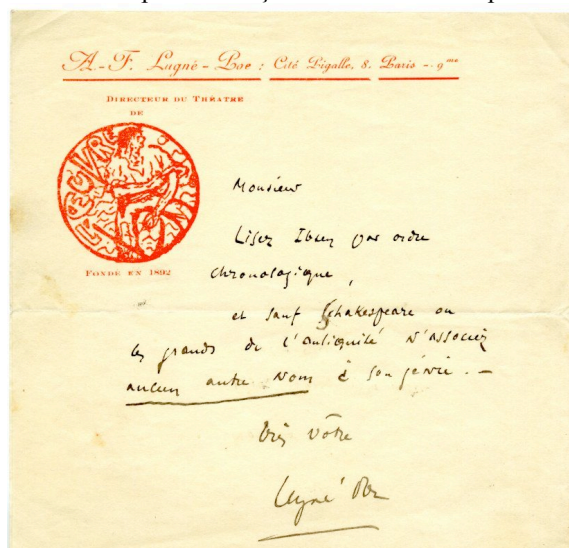 A.-F. Lugné-Poe : Cité Pigalle, 8. Paris - 9me
DIRECTEUR DU THÉATRE
DE
L'ŒUVRE
FONDÉ EN 1892
Monsieur
Lisez Ibsen par ordre
chronologique,
et sauf Shakespeare ou
les grands de l'antiquité N'associez
aucun autre Nom à son génie. —
Très vôtre
Lugné Poe